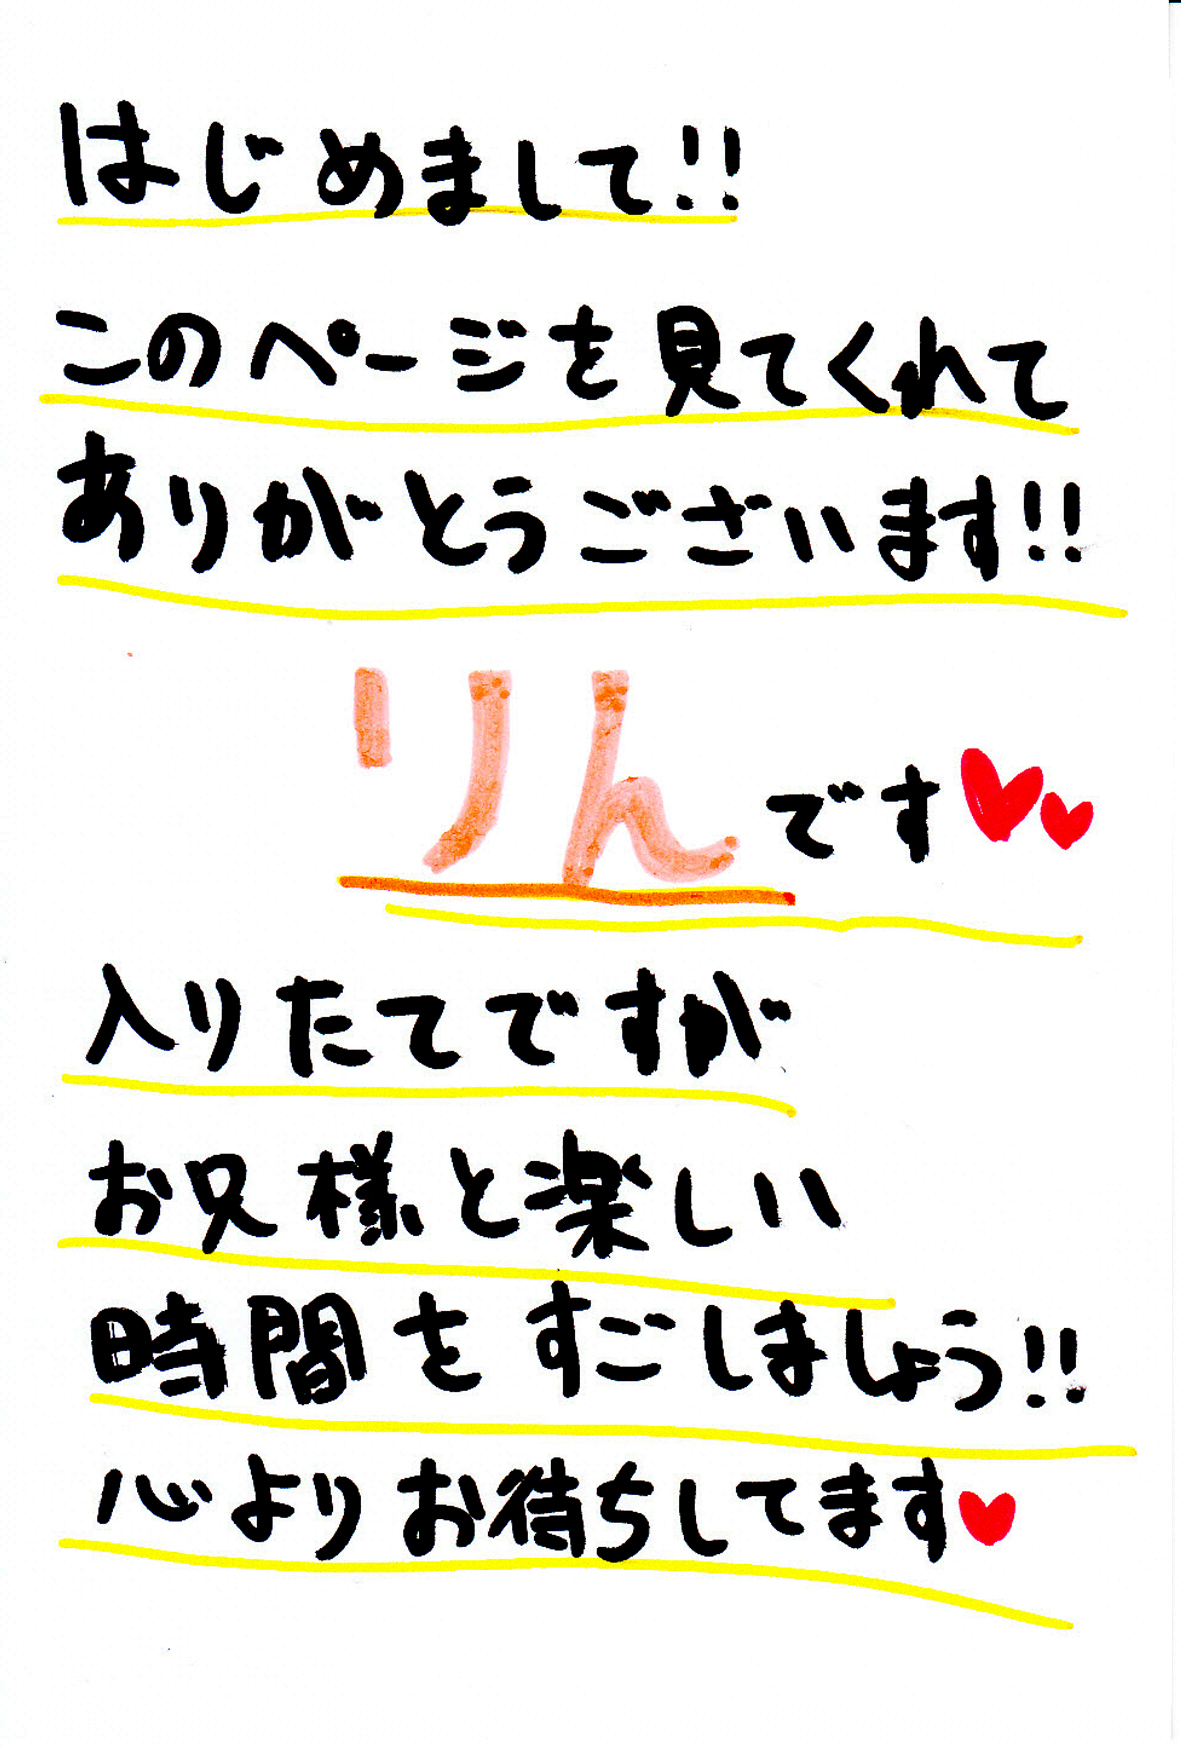 はじめまして!!
このページを見てくれて
ありがとうございます!!
りんです♥♥
入りたてですが
お兄様と楽しい
時間をすごしましょう!!
心よりお待ちしてます♥